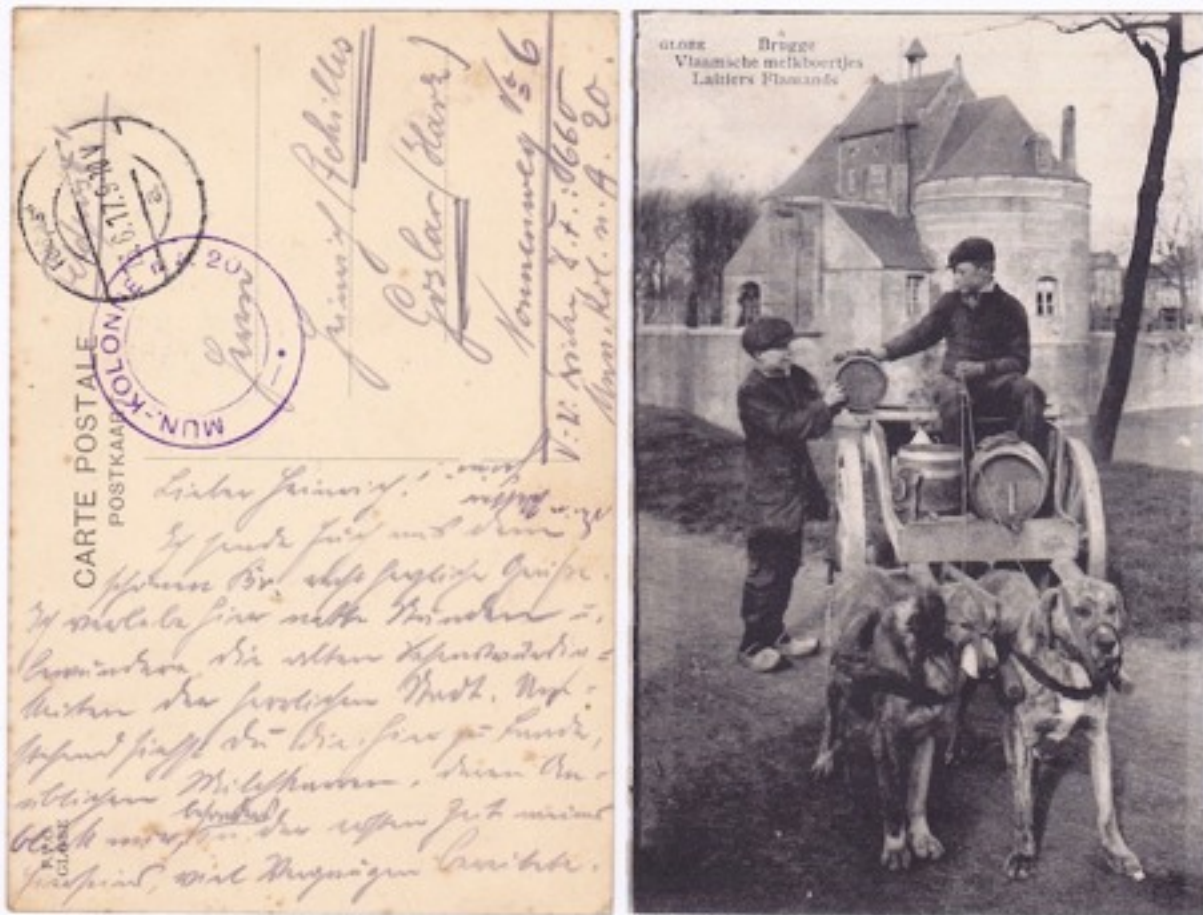 CARTE POSTALE
POSTKAART
MUN.-KOLONNE
20
Herrn
Heinrich Achilles
Goslar (Harz)
Nonnenweg № 6
Lieber Heinrich!
Ich sende Euch aus dem
schönen Br. recht herzliche Grüße.
Ich verlebe hier nette Stunden u.
bewundere die alten Sehenswürdig=
keiten der herrlichen Stadt.
stehend siehst Du die hier zu Lande
üblichen Milchkarren, deren An=
blick mir besonders in der ersten Zeit meines
Hierseins, viel Vergnügen bereitete.
GLOBE
GLOBE Brugge
Vlaamsche melkboertjes
Laitiers Flamands